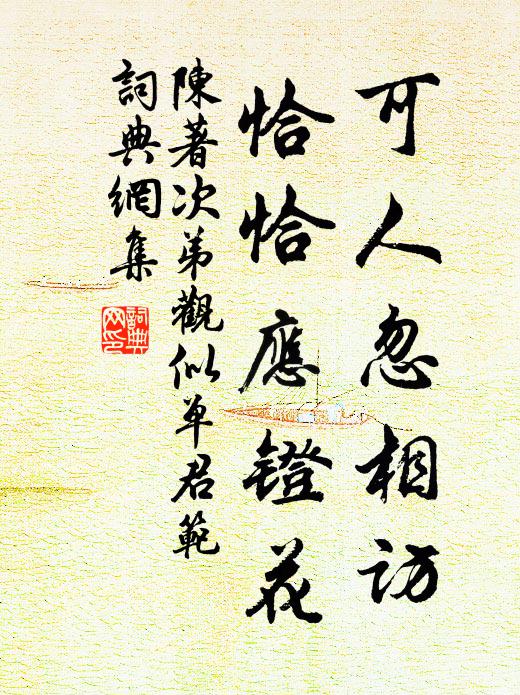 可人忽相訪
恰恰應鐙花
陳著次弟觀似單君範
詞典網集
詞典網印